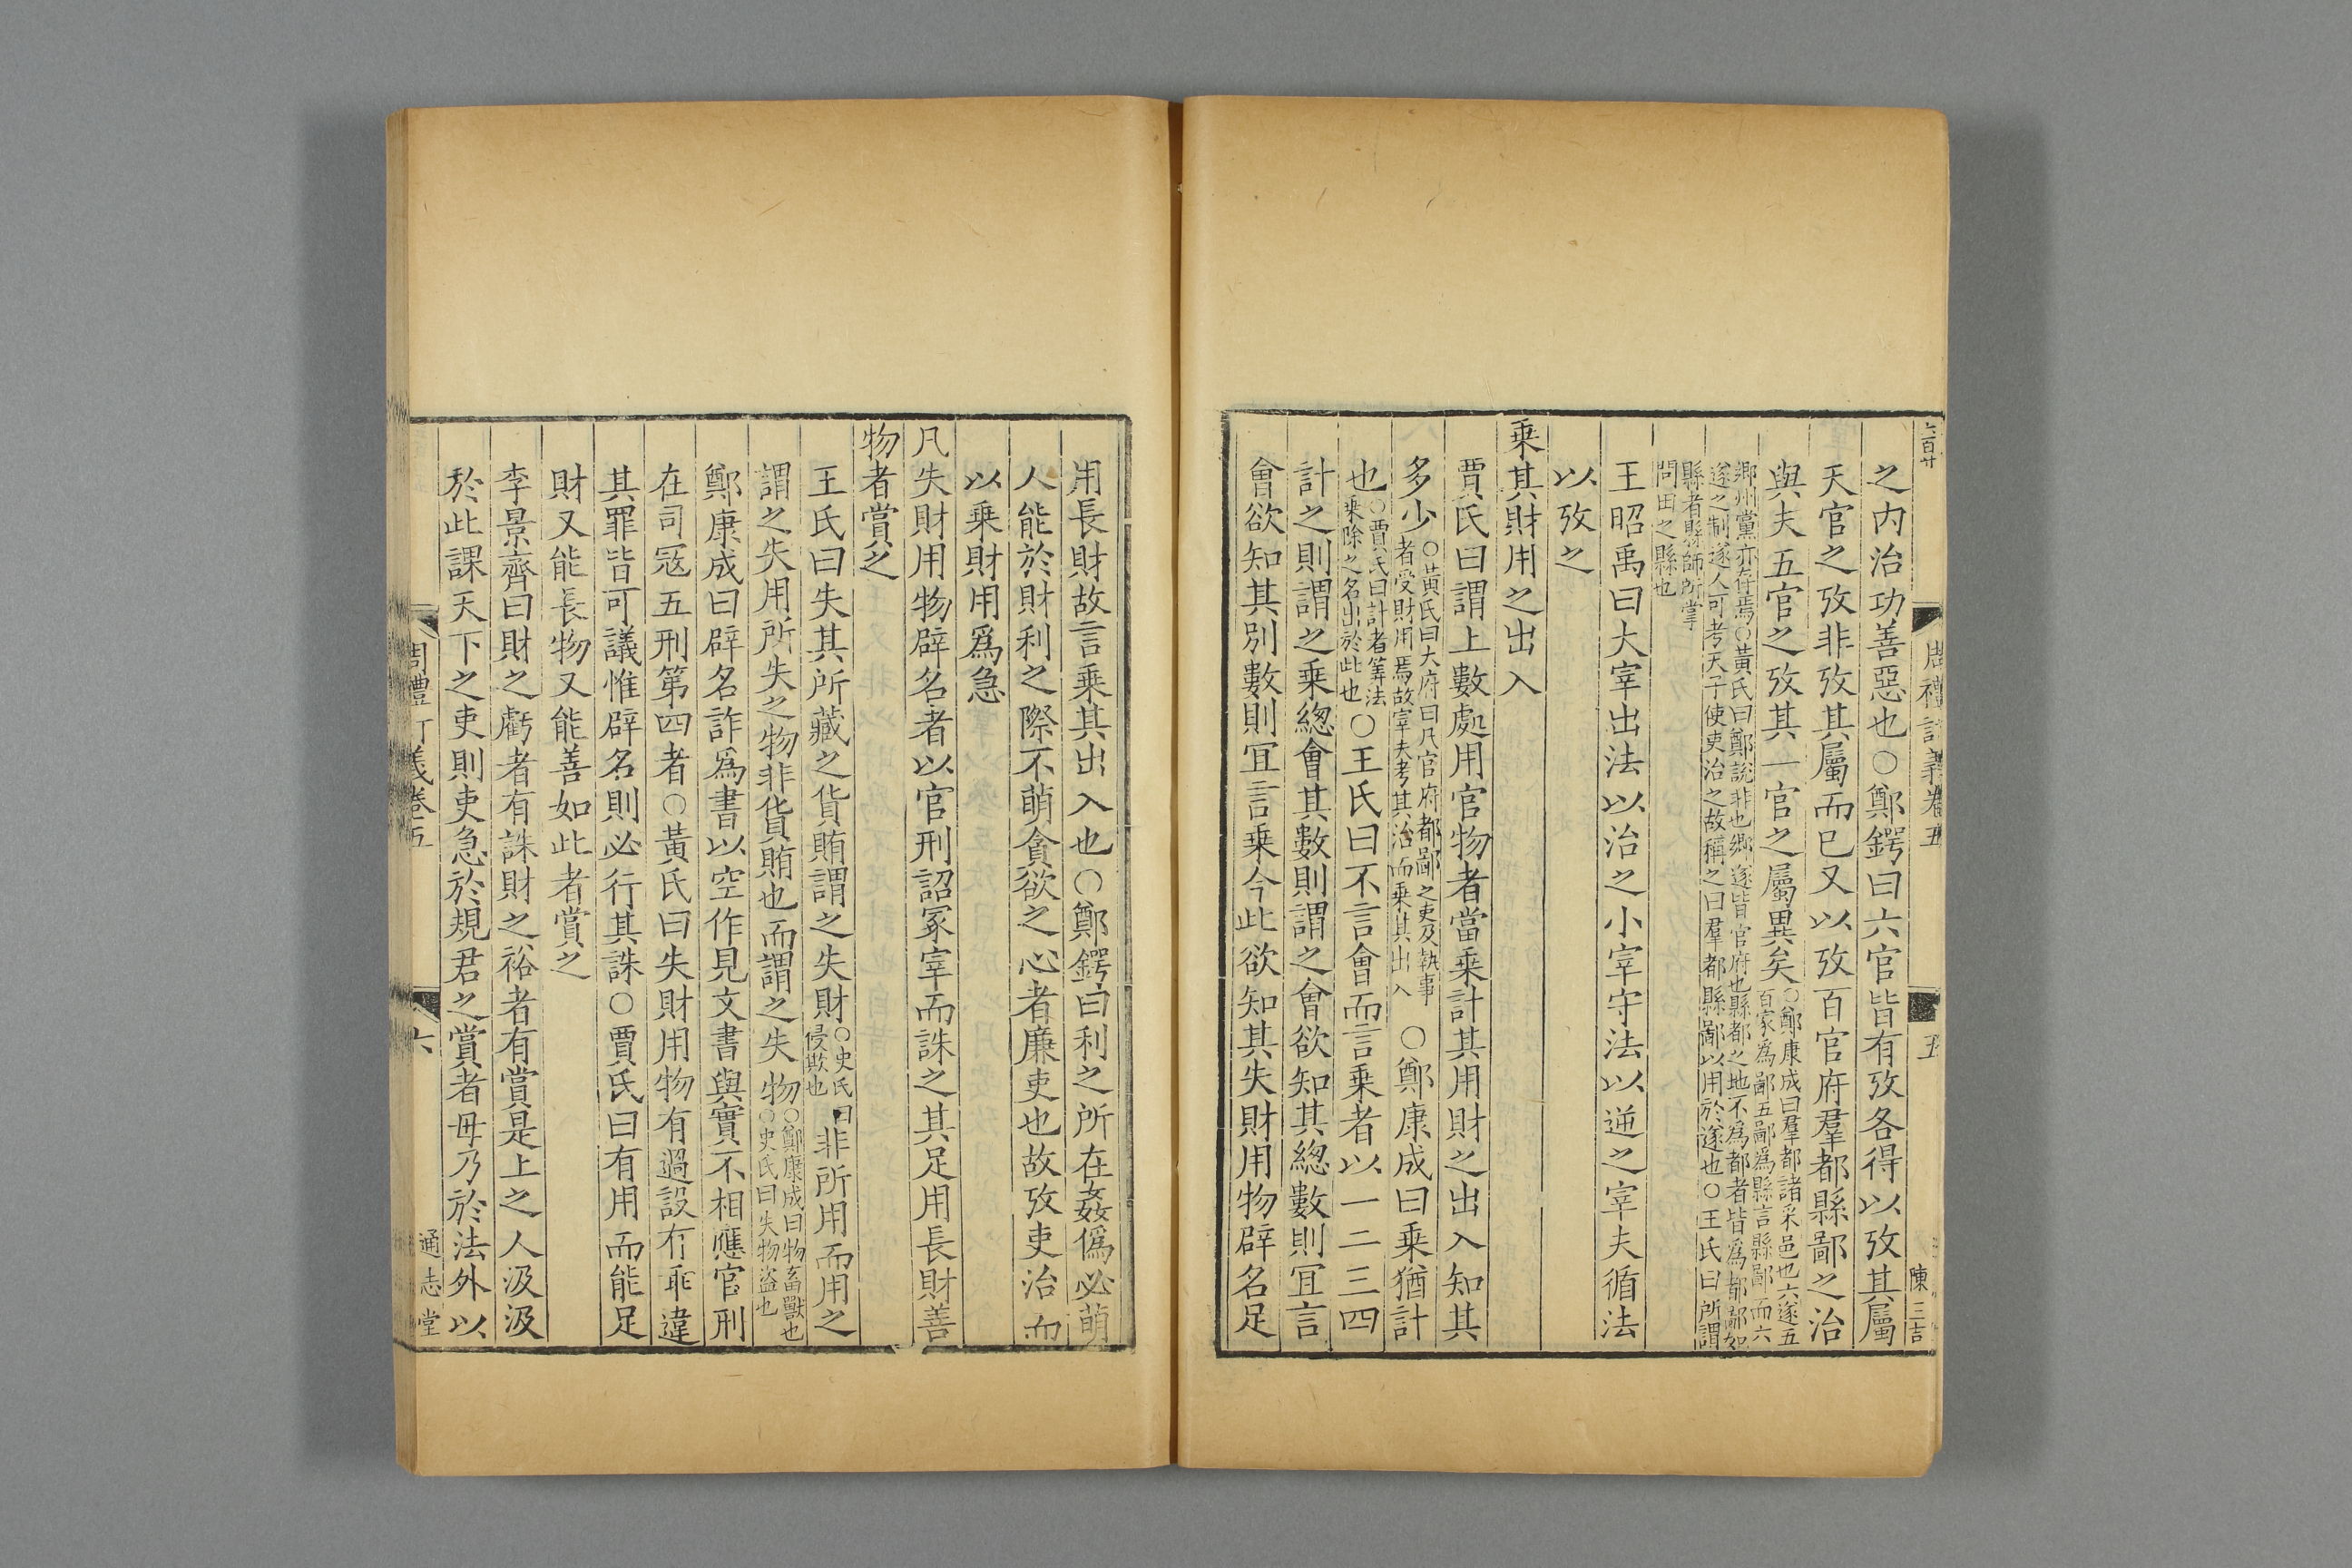 六百廿
周禮訂義卷五
五
陳三吉
之内治功善惡也○鄭鍔曰六官皆有攷各得以攷其屬
天官之攷非攷其屬而已又以攷百官府羣都縣鄙之治
與夫五官之攷其一官之屬異矣○鄭康成曰羣都諸采邑也六遂五百家為鄙五鄙為縣言縣鄙而六
鄉州黨亦存焉○黃氏曰鄭說非也鄉遂皆官府也縣都之地不為都者皆為都鄙如
遂之制遂人可考天子使吏治之故稱之曰羣都縣鄙以用於遂也○王氏曰所謂
縣者縣師所掌
問田之縣也
王昭禹曰大宰出法以治之小宰守法以逆之宰夫循法
以攷之
乘其財用之出入
賈氏曰謂上數處用官物者當乘計其用財之出入知其
多少○黃氏曰大府曰凡官府都鄙之吏及執事者受財用焉故宰夫考其治而乘其出入○鄭康成曰乘猶計
也○賈氏曰計者筭法乘除之名出於此也○王氏曰不言會而言乘者以一二三四
計之則謂之乘緫會其數則謂之會欲知其緫數則宜言
會欲知其別數則宜言乘今此欲知其失財用物辟名足
用長財故言乘其出入也○鄭鍔曰利之所在姦僞必萌
人能於財利之際不萌貪欲之心者廉吏也故攷吏治而
以乘財用爲急
凡失財用物辟名者以官刑詔冢宰而誅之其足用長財善
物者賞之
王氏曰失其所藏之貨賄謂之失財○史氏曰侵欺也非所用而用之
謂之失用所失之物非貨賄也而謂之失物○鄭康成曰物畜獸也○史氏曰失物盜也
鄭康成曰辟名詐爲書以空作見文書與實不相應官刑
在司寇五刑第四者○黃氏曰失財用物有過設有乖違
其罪皆可議惟辟名則必行其誅○賈氏曰有用而能足
財又能長物又能善如此者賞之
李景齊曰財之虧者有誅財之裕者有賞是上之人汲汲
於此課天下之吏則吏急於規君之賞者毋乃於法外以
周禮訂義卷五
六
通志堂